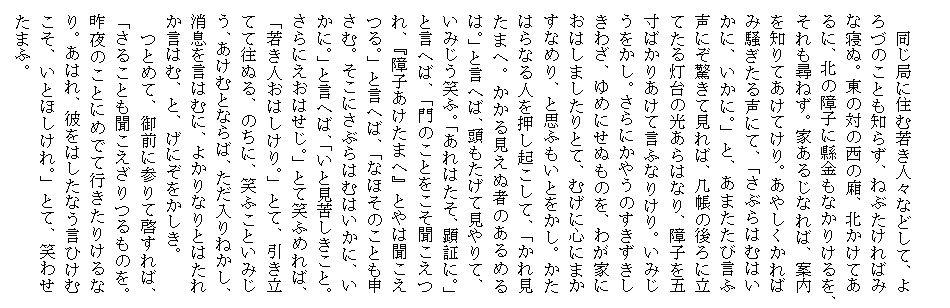 同じ局に住む若き人々などして、よ
ろづのことも知らず、ねぶたければみ
な寝ぬ。東の対の西の廂、北かけてあ
るに、北の障子に懸金もなかりけるを、
それも尋ねず。家あるじなれば、案内
を知りてあけてけり。あやしくかれば
み騒ぎたる声にて、「さぶらはむはい
かに、いかに。」と、あまたたび言ふ
声にぞ驚きて見れば、几帳の後ろに立
てたる灯台の光あらはなり。障子を五
寸ばかりあけて言ふなりけり。いみじ
うをかし。さらにかやうのすきずきし
きわざ、ゆめにせぬものを、わが家に
おはしましたりとて、むげに心にまか
すなめり、と思ふもいとをかし。かた
はらなる人を押し起こして、「かれ見
たまへ。かかる見えぬ者のあるめる
は。」と言へば、頭もたげて見やりて、
いみじう笑ふ。「あれはたそ、顕証に。」
と言へば、「門のことをこそ聞こえつ
れ、『障子あけたまへ』とやは聞こえ
つる。」と言へば、「なほそのことも申
さむ。そこにさぶらはむはいかに、い
かに。」と言へば、「いと見苦しきこと。
さらにえおはせじ。」とて笑ふめれば、
「若き人おはしけり。」とて、引き立
てて往ぬる、のちに、笑ふこといみじ
う、あけむとならば、ただ入りねかし、
消息を言はむに、よかりなりとはたれ
か言はむ、と、げにぞをかしき。
　つとめて、御前に参りて啓すれば、
「さることも聞こえざりつるものを。
昨夜のことにめでて行きたりけるな
り。あはれ、彼をはしたなう言ひけむ
こそ、いとほしけれ。」とて、笑わせ
たまふ。